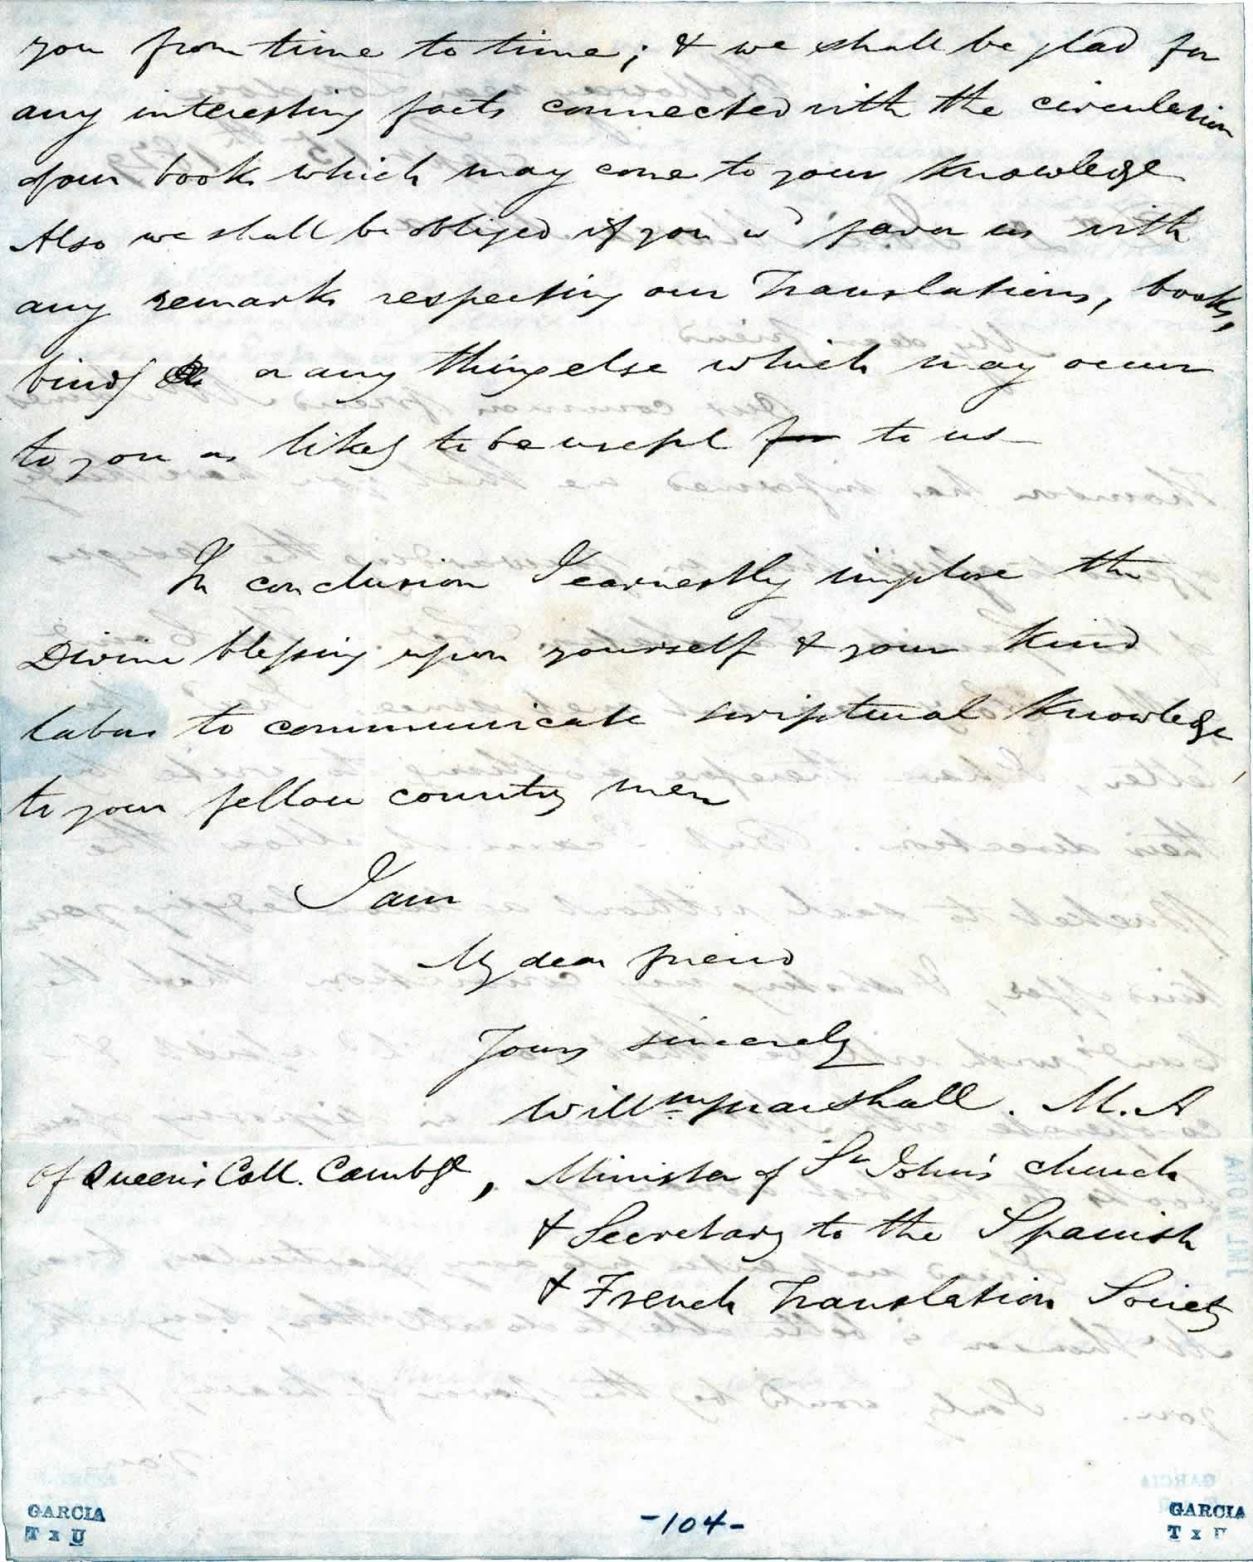 you from time to time; & we shall be glad for
any interesting facts connected with the circulation
of our books which may come to your knowledge
Also we shall be obliged if you wd favor us with
any remarks respecting our Translations, books,
bindg or any thing else which may occur
to you as likely to be useful for to us—
In conclusion I earnestly implore the
Divine blessing upon yourself & your kind
labors to communicate scriptural knowledge
to your fellow country men
I am
My dear friend
Yours sincerely
Willm Marshall. M.A
of Queen's Coll. Cambge, Minister of St John's church
& Secretary to the Spanish
& French Translation Society
GARCIA -104- GARCIA